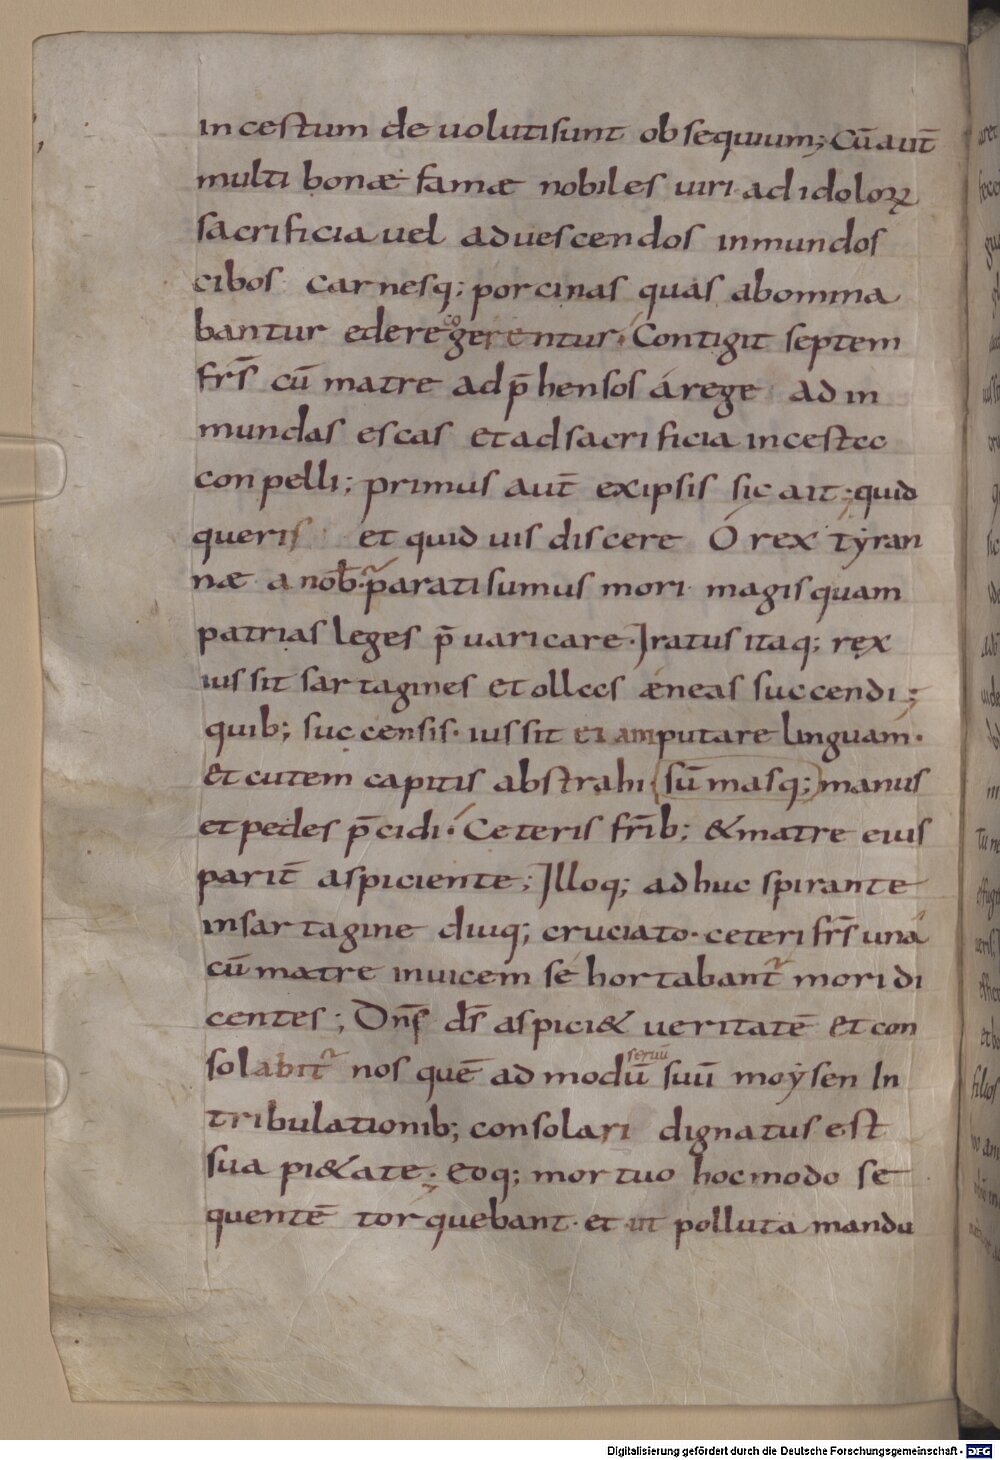 incestum deuolutisunt obsequium; Cū aut̄
multi bonæ famæ nobiles uiri ad idoloꝝ
sacrificia uel aduescendos inmundos
cibos carnesq; porcinas quas abomina
bantur edere cogerentur. Contigit septem
fr̄s cū matre adp̄hensos á rege ad in
mundas escas et ad sacrificia incesta
conpelli; primus aut̄ ex ipsis sic ait; quid
queris et quid uis discere Ó rex tyran
næ a nob̄. parati sumus mori magis quam
patrias leges p̄uaricare. Iratus itaq; rex
iussit sartagines et ollas æneas succendi;
quib; succensis. iussit ei amputare linguam.
et cutem capitis abstrahi sūmasq; manus
et pedes p̄cidi. Ceteris fr̄ib; & matre eius
parit̄ aspiciente; Illoq; adhuc spirante
in sartagine diuq; cruciato. ceteri fr̄s uná
cū matre inuicem sé hortabant̄ mori di
centes; Dn̄s ds̄ aspici& ueritatē et con
solabit̄ nos quē ad modū seruū suū moysen In
tribulationib; consolari dignatus est
sua pi&ate; Eoq; mortuo hoc modo se
quentē torquebant. et ut polluta mandu
Digitalisierung gefördert durch die Deutsche Forschungsgemeinschaft - DFG